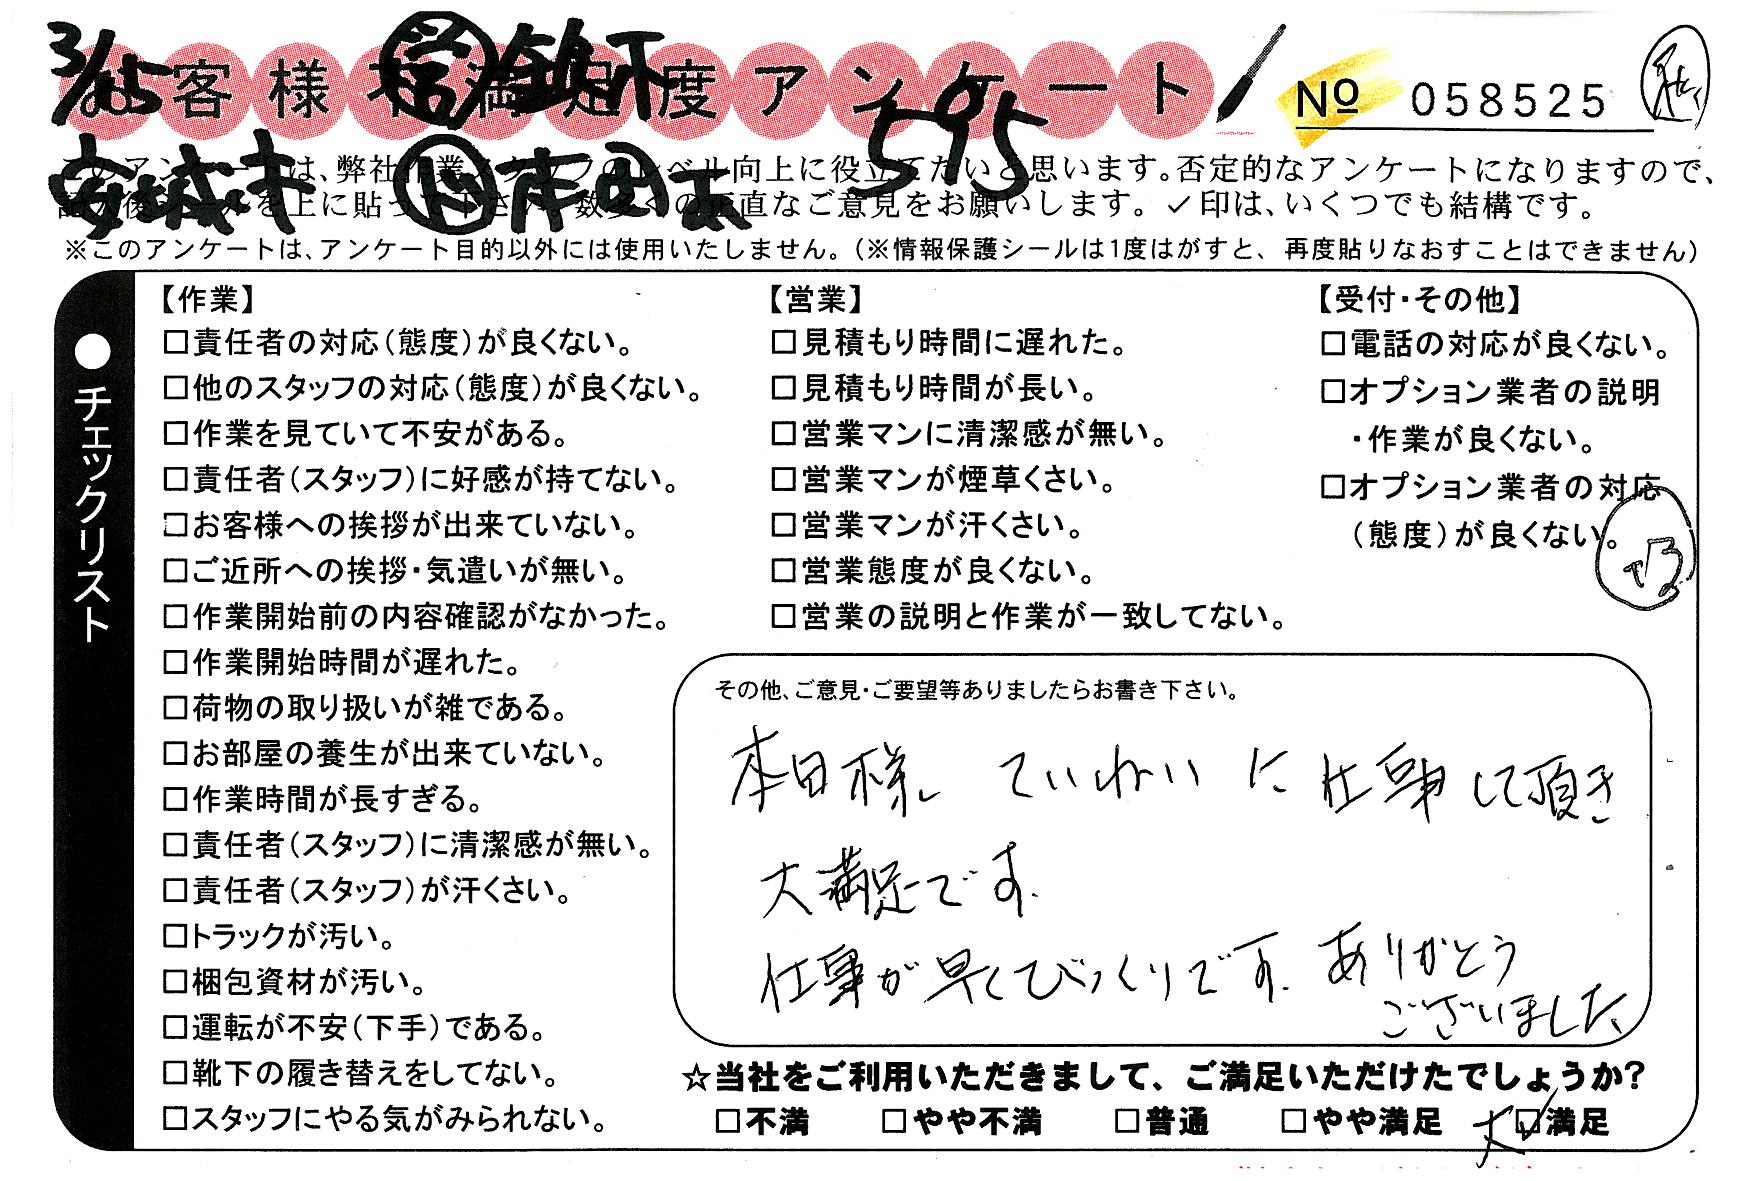 3/25 ㊢ 鈴木下
お客様不満足度アンケート
№ 058525
595
このアンケートは、弊社作業スタッフのレベル向上に役立てたいと思います。否定的なアンケートになりますので、
記入後シールを上に貼って下さい。数多くの正直なご意見をお願いします。✓印は、いくつでも結構です。
※このアンケートは、アンケート目的以外には使用いたしません。（※情報保護シールは1度はがすと、再度貼りなおすことはできません）
●チェックリスト
【作業】
□責任者の対応（態度）が良くない。
□他のスタッフの対応（態度）が良くない。
□作業を見ていて不安がある。
□責任者（スタッフ）に好感が持てない。
□お客様への挨拶が出来ていない。
□ご近所への挨拶・気遣いが無い。
□作業開始前の内容確認がなかった。
□作業開始時間が遅れた。
□荷物の取り扱いが雑である。
□お部屋の養生が出来ていない。
□作業時間が長すぎる。
□責任者（スタッフ）に清潔感が無い。
□責任者（スタッフ）が汗くさい。
□トラックが汚い。
□梱包資材が汚い。
□運転が不安（下手）である。
□靴下の履き替えをしてない。
□スタッフにやる気がみられない。
【営業】
□見積もり時間に遅れた。
□見積もり時間が長い。
□営業マンに清潔感が無い。
□営業マンが煙草くさい。
□営業マンが汗くさい。
□営業態度が良くない。
□営業の説明と作業が一致してない。
【受付・その他】
□電話の対応が良くない。
□オプション業者の説明
・作業が良くない。
□オプション業者の対応
（態度）が良くない。
その他、ご意見・ご要望等ありましたらお書き下さい。
本田様 ていねいに仕事して頂き
大満足です.
仕事が早くてびっくりです. ありがとう
ございました
☆当社をご利用いただきまして、ご満足いただけたでしょうか?
□不満 □やや不満 □普通 □やや満足 大☑満足